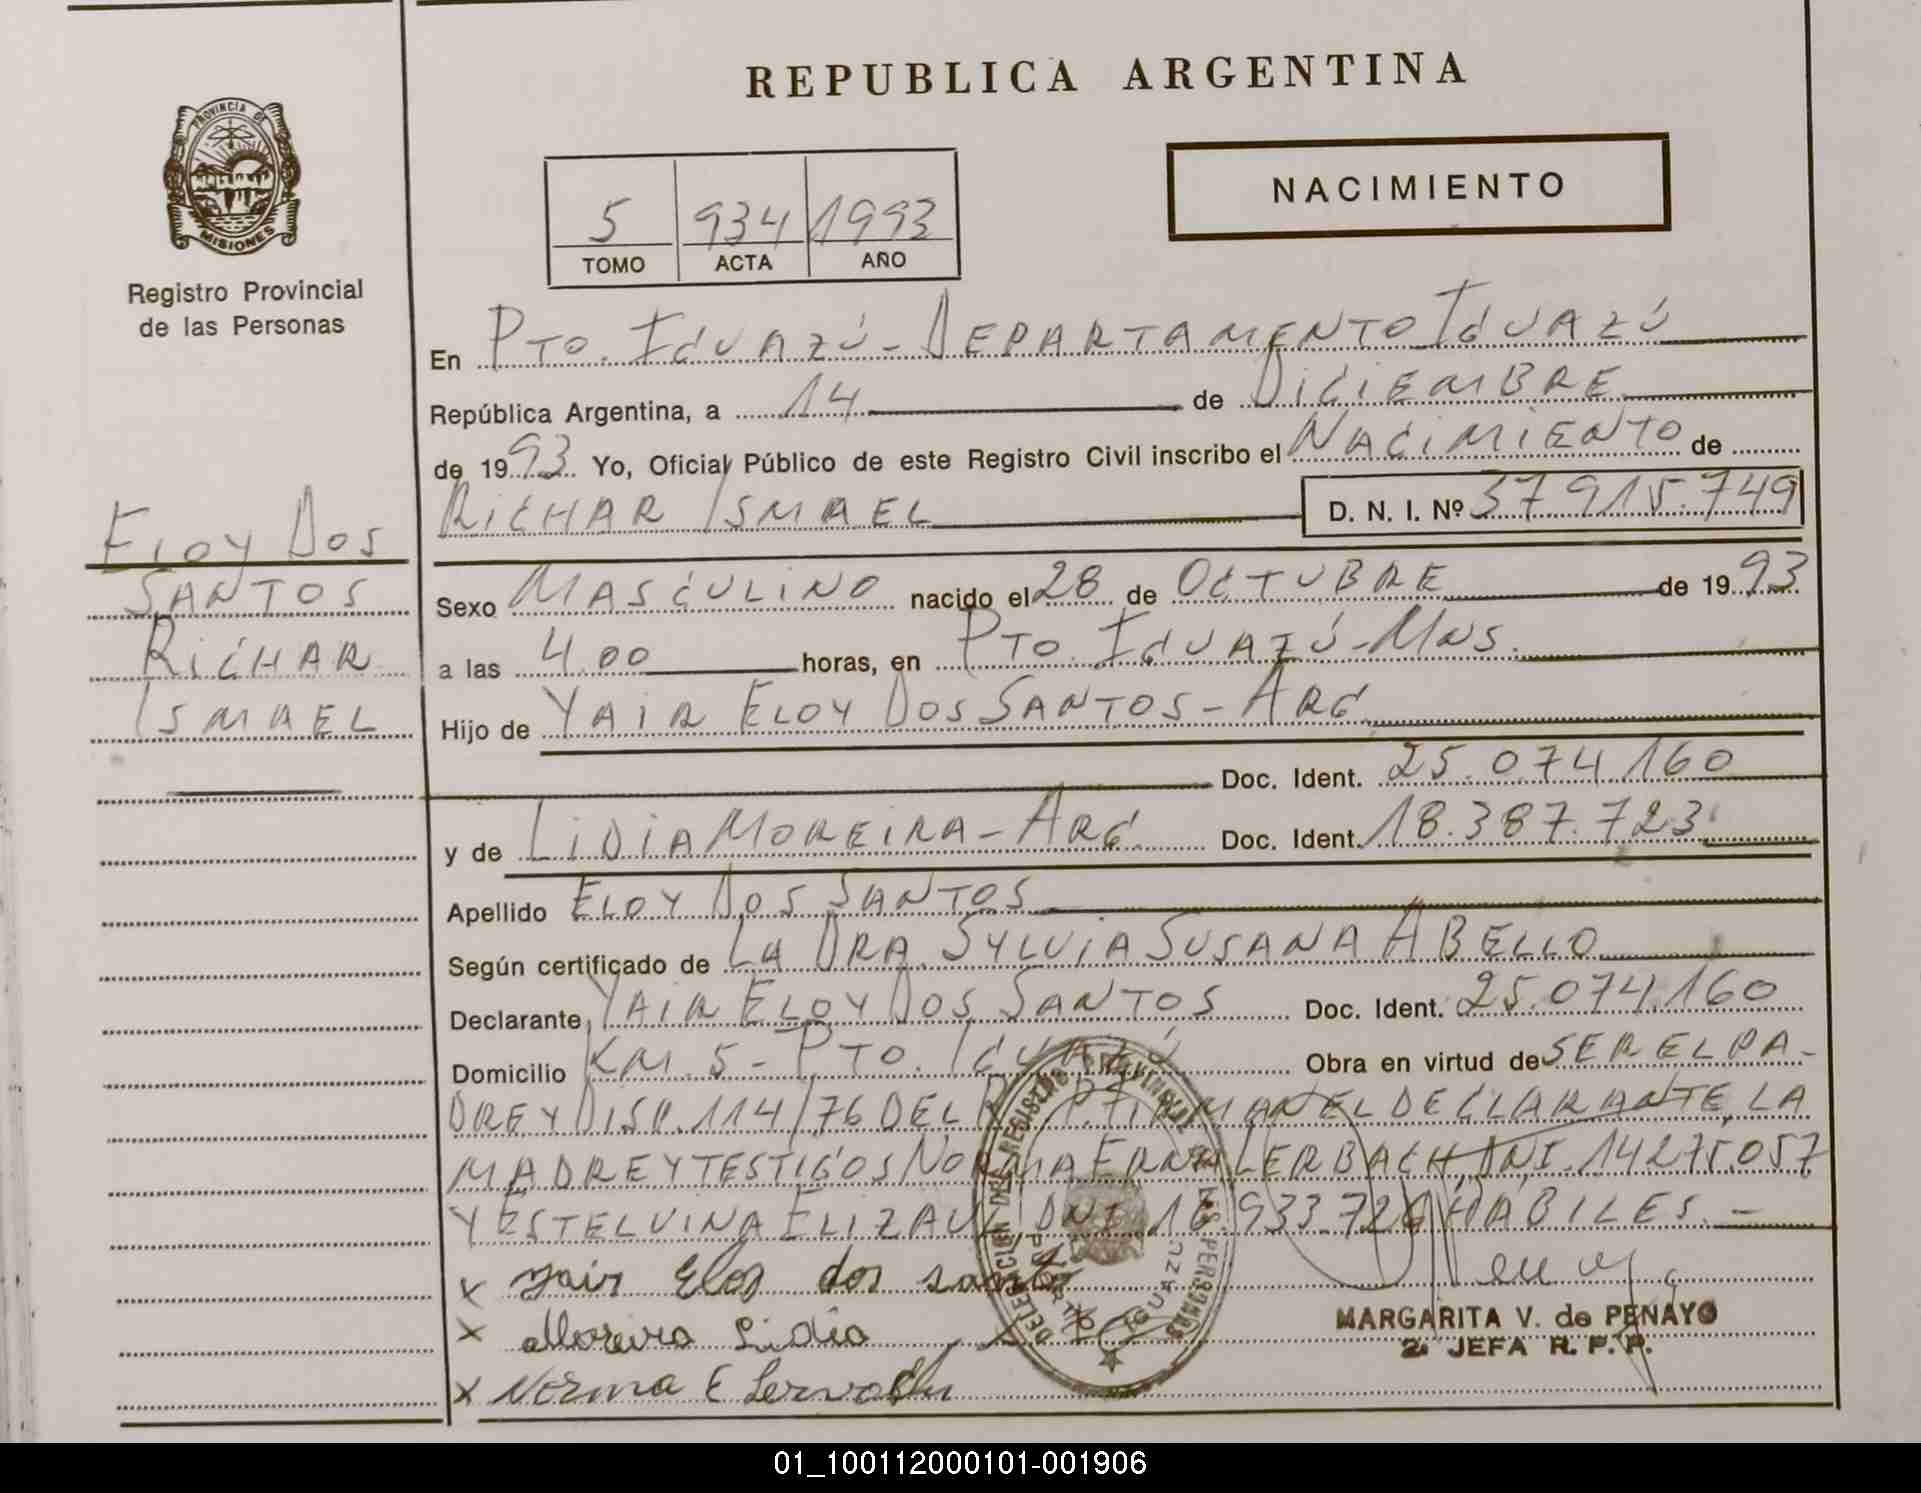 REPUBLICA ARGENTINA
PROVINCIA DE
MISIONES
Registro Provincial
de las Personas
NACIMIENTO
5 934 1993
TOMO ACTA AÑO
En Pto. Iguazú - Departamento Iguazú
República Argentina, a 14 de Diciembre
de 1993 Yo, Oficial Público de este Registro Civil inscribo el Nacimiento de
Richar Ismael D. N. I. Nº 37.915.749
Eloy Dos
Santos
Richar
Ismael
Sexo Masculino nacido el 28 de Octubre de 1993
a las 4.00 horas, en Pto. Iguazú - Mns.
Hijo de Yair Eloy Dos Santos - Arg
Doc. Ident. 25.074.160
y de Lidia Moreira - Arg Doc. Ident. 18.387.723
Apellido Eloy Dos Santos
Según certificado de La Dra. Sylvia Susana Abello
Declarante Yair Eloy Dos Santos Doc. Ident. 25.074.160
Domicilio Km. 5 - Pto. Iguazú Obra en virtud de ser el pa-
dre y Disp. 114/76 del R.P.P. Firman el declarante, la
madre y testigos Norma Erna Lerbach DNI. 14275.057
y Estelvina DNI 16.933.726 Hábiles. -
x yair Eloy dos santos
x Moreira Lidia
x Norma E
DELEGACION DEL REGISTRO PROVINCIAL DE LAS PERSONAS
PUERTO IGUAZU
MARGARITA V. de PENAYO
2ª JEFA R. P. P.
01_100112000101-001906